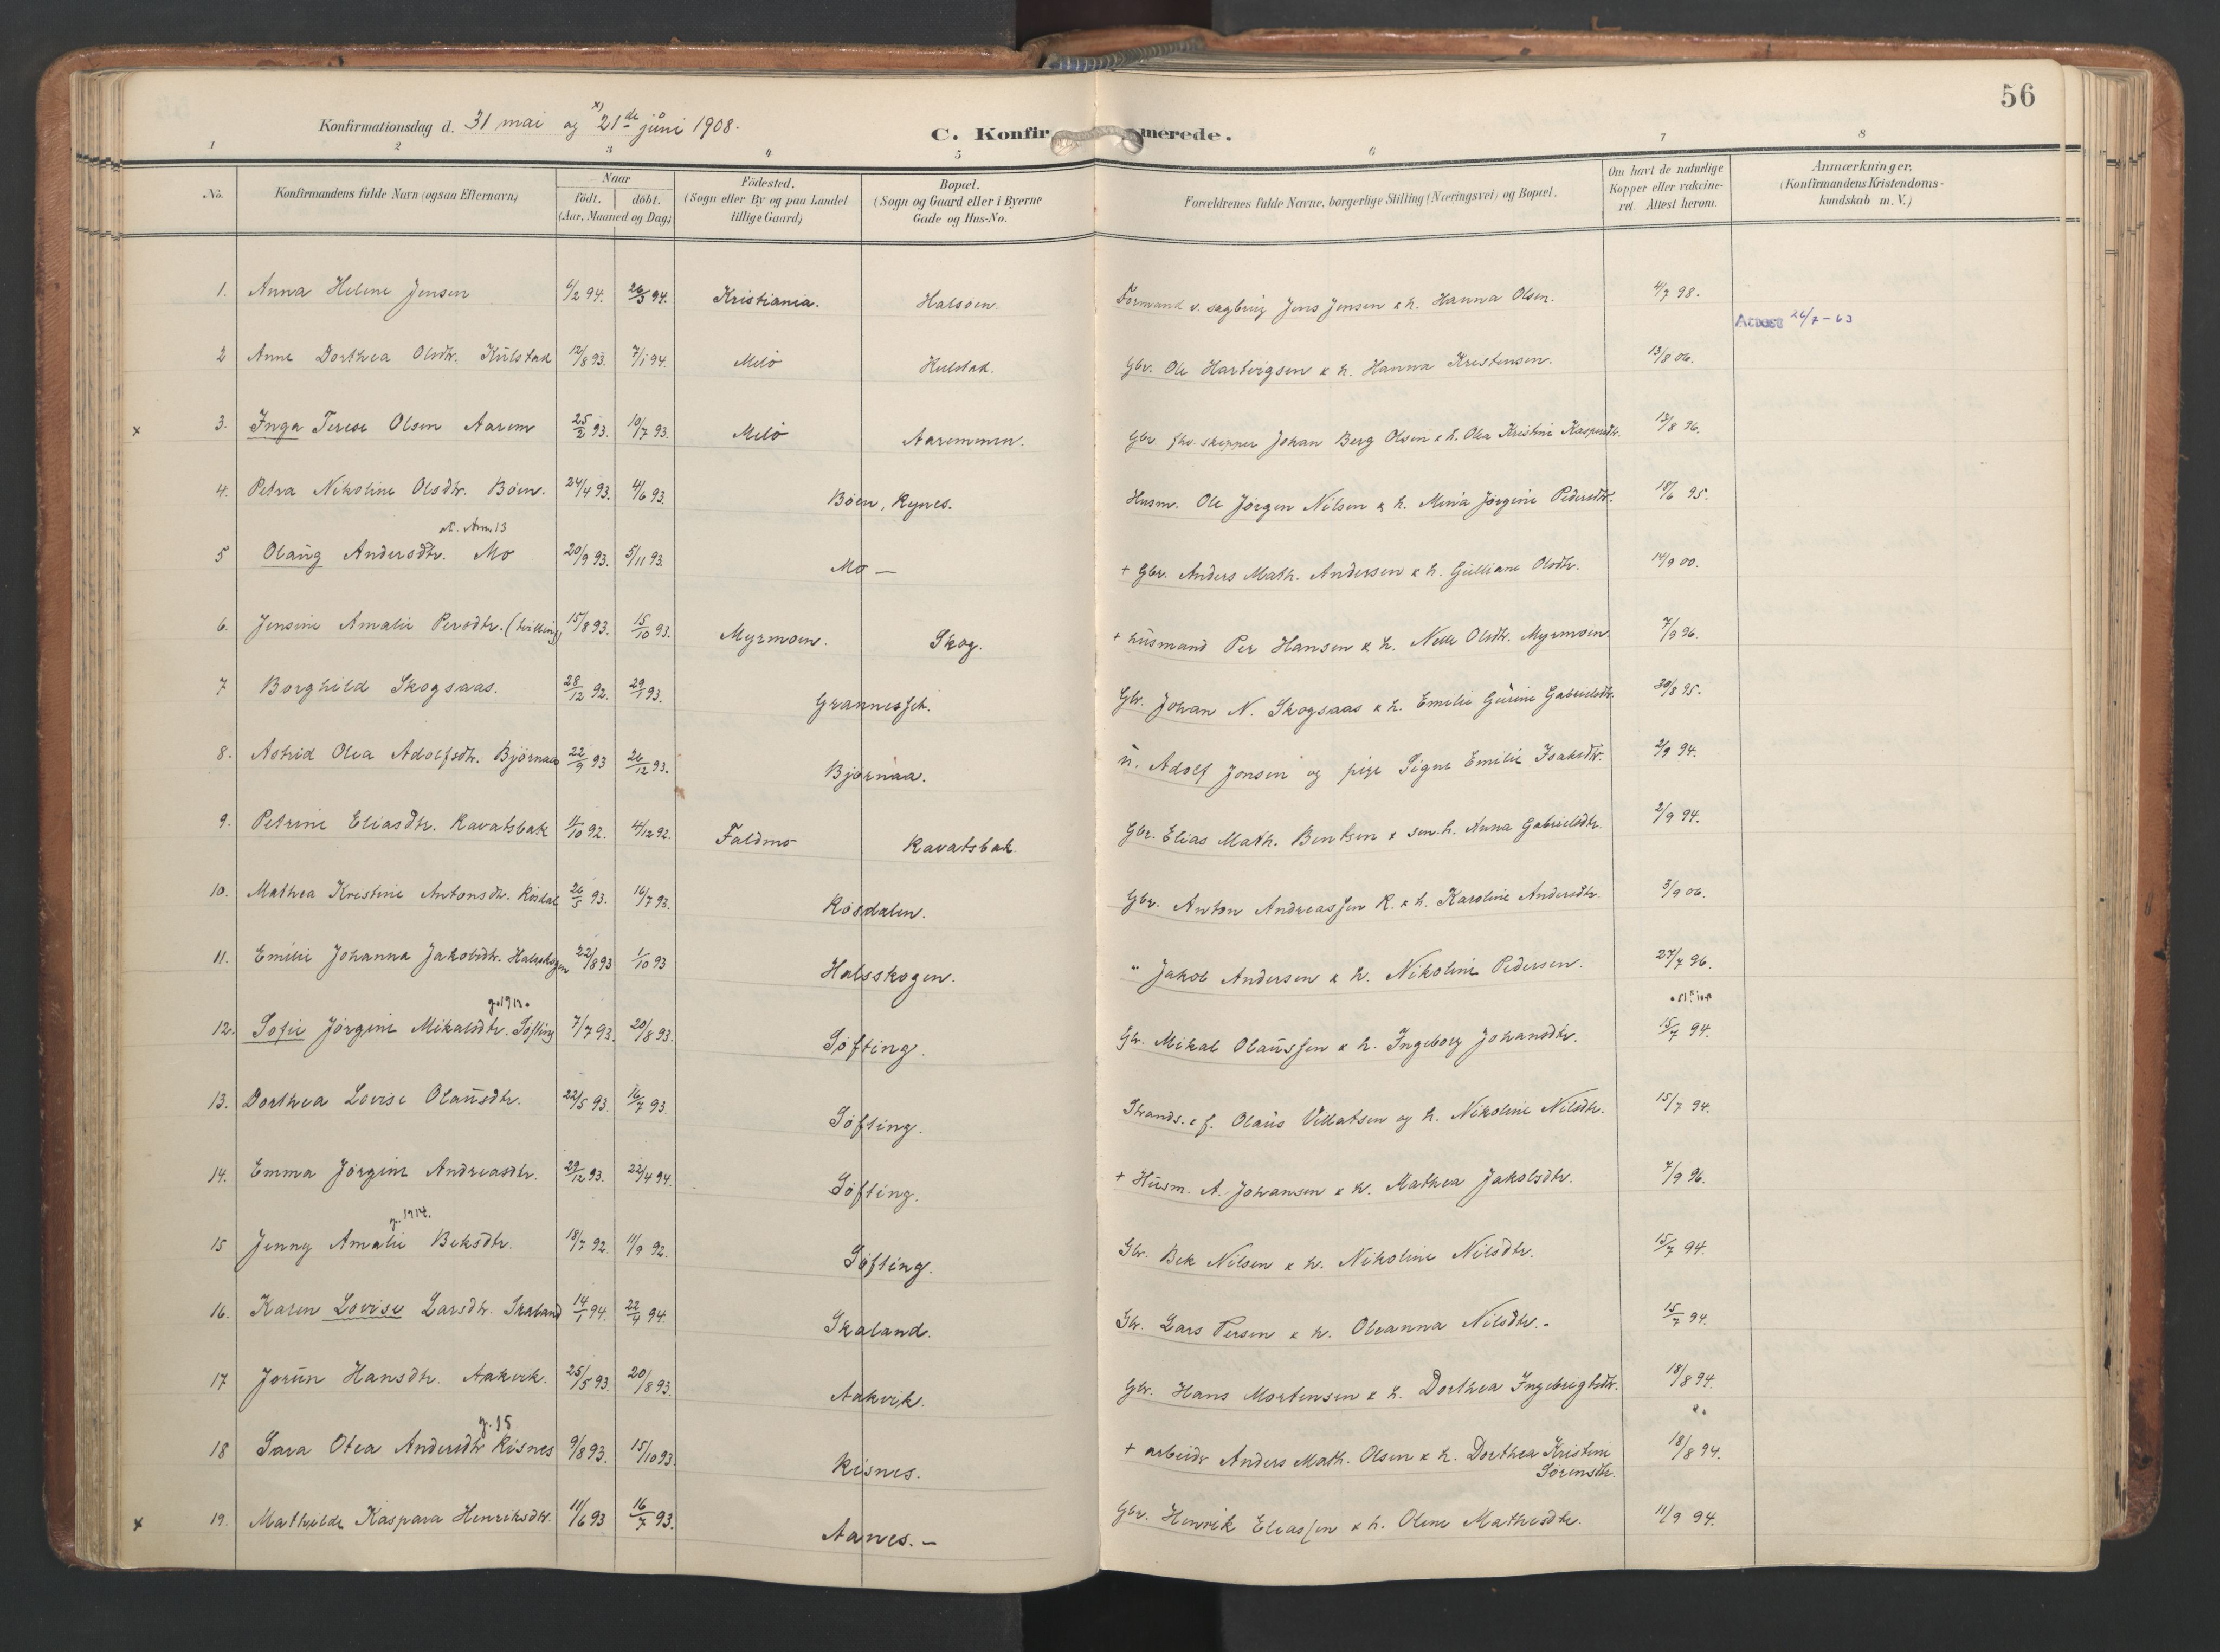 56
Konfirmationsdag d. 31 mai og x) 21de juni 1908.
C. Konfir merede.
1 2 3 4 5 6 7 8
No. Konfirmandens fulde Navn (ogsaa Efternavn) Naar født. døbt. (Aar, Maaned og Dag) Fødested. (Sogn eller By og paa Landet tillige Gaard) Bopæl. (Sogn og Gaard eller i Byerne Gade og Hus-No. Forældrenes fulde Navne, borgerlige Stilling (Næringsvei) og Bopæl. Om havt de naturlige Kopper eller vakcineret. Attest herom. Anmærkninger. (Konfirmandens Kristendomskundskab m. V.)
1. Anna Helene Jensen 6/2 94. 26/3 94. Kristiania. Halsøen. Formand v. sagbrug Jens Jensen & h. Hanna Olsen. 4/7 98.
Attest 26/7-63
2 Anne Dorthea Olsdtr. Kulstad 12/8 93. 7/1 94. Melö Kulstad. Gbr. Ole Hartvigsen & h. Hanna Kristensen. 13/8 06.
x 3. Inga Terese Olsen Aarem 25/2 93. 10/7 93. Melö Aaremmen. Gbr. fhv. skipper Johan Berg Olsen & h. Olea Kristine Kaspersdtr. 13/8 96.
4. Petra Nikoline Olsdtr. Böen. 24/4 93. 4/6 93. Böen, Rynes. Husm. Ole Jörgen Nilsen & h. Mina Jörgine Pedersdtr. 18/6 95.
5 Olaug Andersdtr. Mo 20/9 93. 5/11 93. Mo — + Gbr. Anders Math. Andersen & h. Gulliane Olsdtr. 14/9 00.
6. Jensine Amalie Persdtr. (tvilling) 15/8 93. 15/10 93. Myrmoen. Skog. + husmand Per Hansen & h. Nelle Olsdtr. Myrmoen. 7/9 96.
7 Borghild Skogsaas. 28/12 92. 29/1 93. Grannesset. Gbr. Johan N. Skogsaas & h. Emilie Gurine Gabrielsdtr. 30/8 95.
8. Astrid Olea Adolfsdtr. Björnaa 22/9 93 26/12 93. Björnaa. u. Adolf Jonsen og pige Signe Emilie Isaksdtr. 2/9 94.
9. Petrine Eliasdtr. Ravatsbak 11/10 92. 4/12 92. Faldmo Ravatsbak. Gbr. Elias Math. Bentsen & sen. h. Anna Gabrielsdtr. 2/9 94.
10. Mathea Kristine Antonsdtr. Rösdal 26/5 93. 16/7 93. Rösdalen. Gbr. Anton Andreassen R. & h. Karoline Andersdtr. 3/9 06.
11. Emilie Johanna Jakobsdtr. Halsskogen 22/8 93 1/10 93 Halsskogen. " Jakob Andersen & h. Nikoline Pedersen. 27/7 96.
g. 1913.
12. Sofie Jörgine Mikalsdtr. Söfting 7/7 93. 20/8 93. Söfting. Gbr. Mikal Olaussen & h. Ingeborg Johansdtr. 15/7 94.
13. Dorthea Lovise Olausdtr. 22/5 93. 16/7 93. Söfting. Strands. & f. Olaus Vellatsen og h. Nikoline Nilsdtr. 15/7 94.
14. Emma Jörgine Andreasdtr. 29/12 93. 22/4 94. Söfting. + Husm. A. Johansen & h. Mathea Jakobsdtr. 7/9 96.
g. 1914.
15 Jenny Amalie Beksdtr. 18/7 92. 11/9 92. Söfting. Gbr. Bek Nilsen & h. Nikoline Nilsdtr. 15/7 94.
16. Karen Lovise Larsdtr. Skaland 14/1 94. 22/4 94. Skaland. Gbr. Lars Persen & h. Oleanna Nilsdtr. 15/7 94.
17 Jorun Hansdtr. Aakvik. 25/5 93. 20/8 93. Aakvik. Gbr. Hans Mortensen & h. Dorthea Ingebrigtsdtr. 18/8 94.
g. 15
18 Sara Otea Andersdtr Risnes 9/8 93. 15/10 93. Risnes. + arbeider Anders Math. Olsen & h. Dorthea Kristine Sörensdtr. 18/8 94.
x 19. Mathilde Kaspara Henriksdtr. 11/6 93 16/7 93. Aanes. — Gbr. Henrik Eliassen & h. Oline Mathisdtr. 11/9 94.